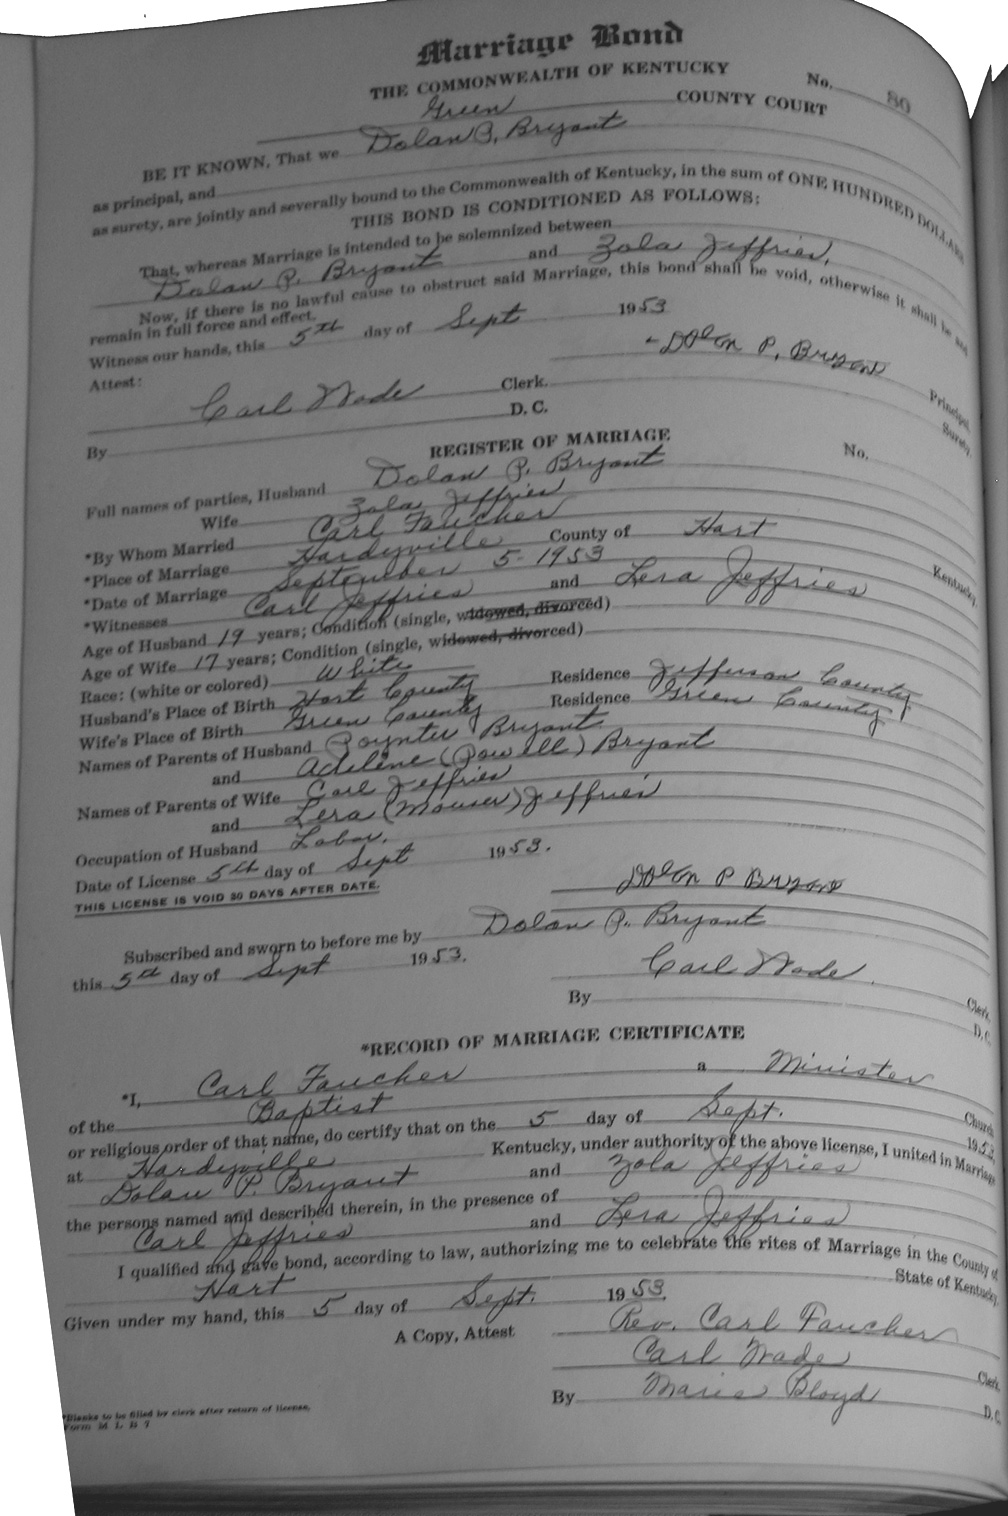 Marriage Bond
THE COMMONWEALTH OF KENTUCKY No. 80
Green COUNTY COURT
BE IT KNOWN, That we Dolan P. Bryant
as principal, and
as surety, are jointly and severally bound to the Commonwealth of Kentucky, in the sum of ONE HUNDRED DOLLARS
THIS BOND IS CONDITIONED AS FOLLOWS:
That, whereas Marriage is intended to be solemnized between
Dolan P. Bryant and Zola Jeffries,
Now, if there is no lawful cause to obstruct said Marriage, this bond shall be void, otherwise it shall be and
remain in full force and effect.
Witness our hands, this 5th day of Sept 1953
Attest: Dolon P. Bryant Principal.
Carl Wade Clerk. Surety.
By D. C.
REGISTER OF MARRIAGE No.
Full names of parties, Husband Dolan P. Bryant
Wife Zola Jeffries
*By Whom Married Carl Faucher
*Place of Marriage Hardyville County of Hart Kentucky.
*Date of Marriage September 5- 1953
*Witnesses Carl Jeffries and Lera Jeffries
Age of Husband 19 years; Condition (single, widowed, divorced)
Age of Wife 17 years; Condition (single, widowed, divorced)
Race: (white or colored) White
Husband's Place of Birth Hart County Residence Jefferson County
Wife's Place of Birth Green County Residence Green County
Names of Parents of Husband Poynter Bryant
and Adeline (Powell) Bryant
Names of Parents of Wife Carl Jeffries
and Lera (Mouser) Jeffries
Occupation of Husband Labor.
Date of License 5th day of Sept 1953.
THIS LICENSE IS VOID 30 DAYS AFTER DATE.
Dolon P Bryant
Subscribed and sworn to before me by Dolan P. Bryant
this 5th day of Sept 1953.
Carl Wade Clerk.
By D. C.
*RECORD OF MARRIAGE CERTIFICATE
*I, Carl Faucher a Minister
of the Baptist Church
or religious order of that name, do certify that on the 5 day of Sept. 1953,
at Hardyville Kentucky, under authority of the above license, I united in Marriage
Dolan P. Bryant and Zola Jeffries
the persons named and described therein, in the presence of
Carl Jeffries and Lera Jeffries
I qualified and gave bond, according to law, authorizing me to celebrate the rites of Marriage in the County of
Hart State of Kentucky.
Given under my hand, this 5 day of Sept. 1953.
A Copy, Attest Rev. Carl Faucher
Carl Wade Clerk.
By Marie Bloyd D. C.
*Blanks to be filled by clerk after return of license.
Form M. L. B 7